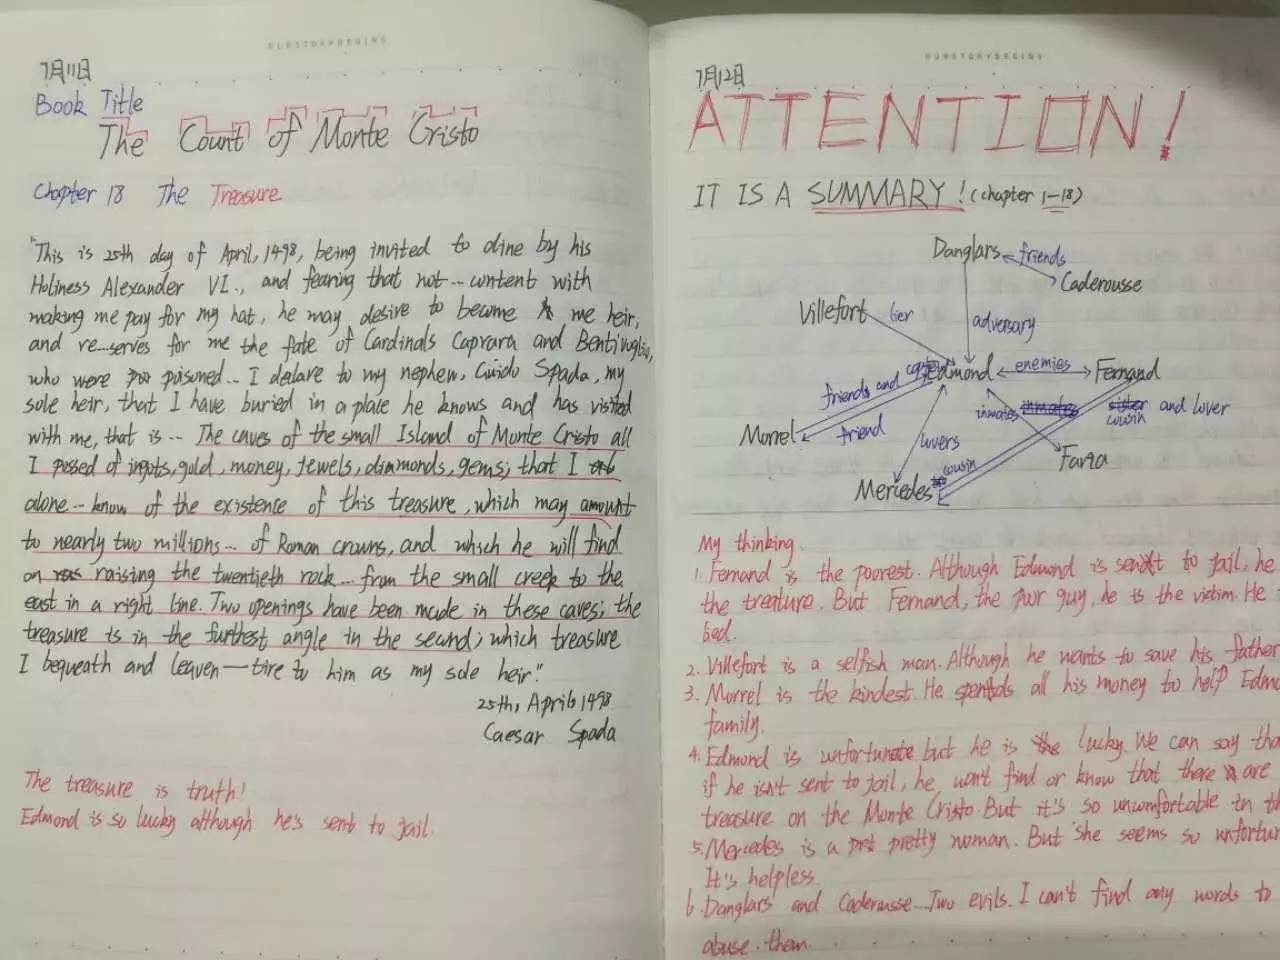 OURSTORYBEGINS
7月11日
Book Title
The Count of Monte Cristo
Chapter 18 The Treasure
"This is 25th day of April, 1498, being invited to dine by his
Holiness Alexander VI., and fearing that not... content with
making me pay for my hat, he may desire to become me heir,
and re...serves for me the fate of Cardinals Caprara and Bentivoglio,
who were poisoned... I declare to my nephew, Guido Spada, my
sole heir, that I have buried in a place he knows and has visited
with me, that is... The caves of the small Island of Monte Cristo all
I possed of ingots, gold, money, jewels, diamonds, gems; that I
alone... know of the existence of this treasure, which may amount
to nearly two millions... of Roman crowns, and which he will find
on raising the twentieth rock... from the small creek to the
east in a right line. Two openings have been made in these caves; the
treasure is in the furthest angle in the second; which treasure
I bequeath and leaven—tire to him as my sole heir."
25th, April 1498
Caesar Spada
The treasure is truth!
Edmond is so lucky although he's sent to jail.
OURSTORYBEGINS
7月12日
ATTENTION!
IT IS A SUMMARY! (chapter 1-18)
Danglars friends
Caderousse
Villefort lier
adversary
Edmond enemies Fernand
friends and
inmates cousin and lover
Morrel friend
lovers
Faria
cousin
Mercedes
My thinking.
1. Fernand is the poorest. Although Edmond is sent to jail, he
the treature. But Fernand, the poor guy, he is the victim. He
lied.
2. Villefort is a selfish man. Although he wants to save his father
3. Morrel is the kindest. He spends all his money to help Edmo
family.
4. Edmond is unfortunate but he is lucky. We can say tha
if he isn't sent to jail, he won't find or know that there are
treasure on the Monte Cristo. But it's so uncomfortable in th
5. Mercedes is a pretty woman. But she seems so unfortun
It's helpless.
6. Danglars and Caderousse... Two evils. I can't find any words to
abuse them.